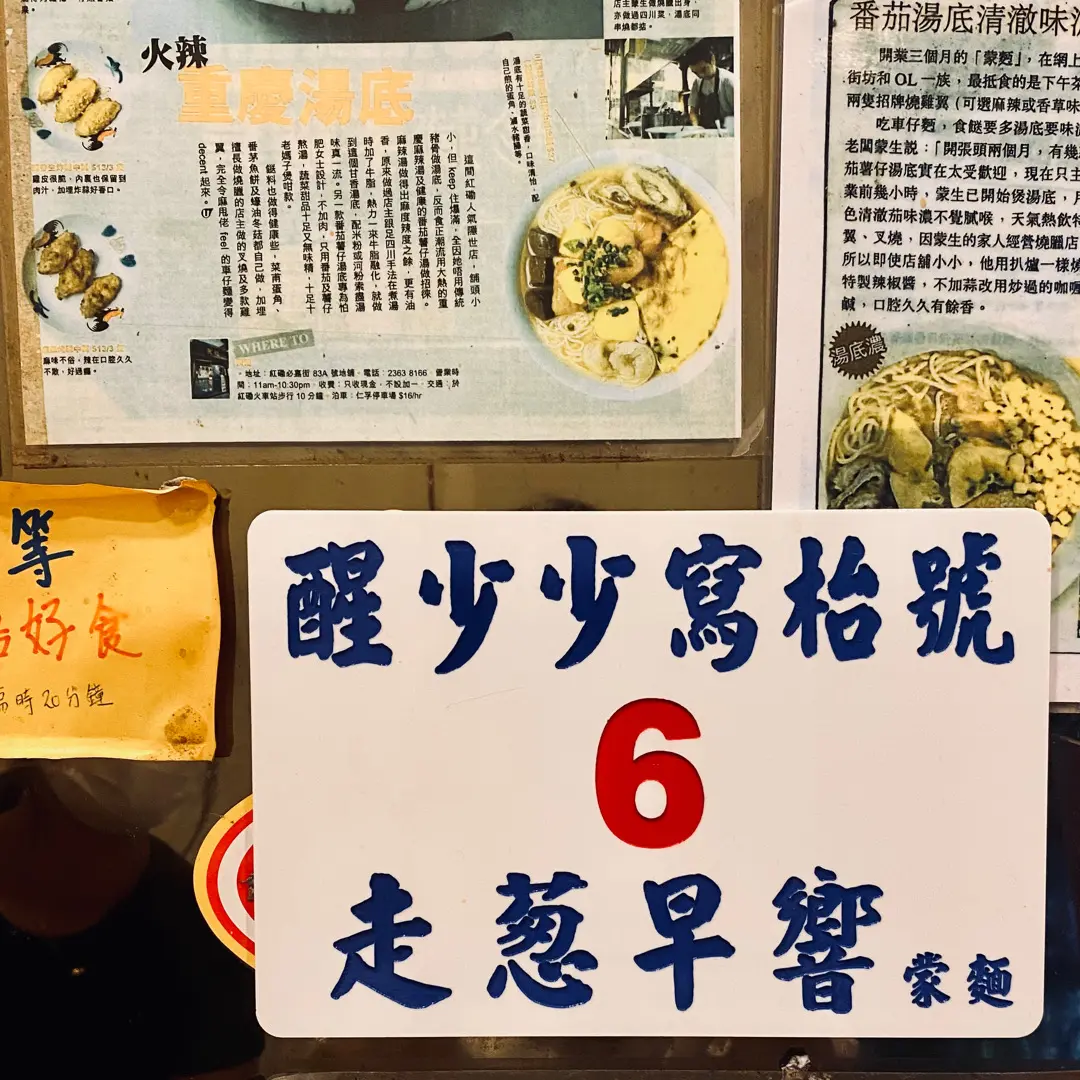 店主蒙生做燒臘出身，
亦做過四川菜，湯底同
串燒都掂。
火辣
重慶湯底
湯底有十足的蔬菜甜香，口味清怡，配
自己煎的蛋角、滷水豬腸等。
這間紅磡人氣隱世店，舖頭小
小，但 keep 住爆滿，全因她唔用傳統
豬骨做湯底，反而食正潮流用大熱的重
慶麻辣湯及健康的番茄薯仔湯做招徠。
麻辣湯做得出麻度辣度之餘，更有油
香，原來做過店主跟足四川手法在煮湯
時加了牛脂，熱力一來牛脂融化，就做
到這個甘香湯底，配米粉或河粉索盡湯
味真一流。另一款番茄薯仔湯底專為怕
肥女士設計，不加肉，只用番茄及薯仔
熬湯，蔬菜甜品十足又無味精，十足十
老媽子煲咁款。
餸料也做得健康些，菜甫蛋角、
番茅魚餅及蠔油冬菇都自己做，加埋
擅長做燒臘的店主做的叉燒及多款雞
翼，完全令麻甩佬 feel 的車仔麵變得
decent 起來。
雞皮很脆，內裏也保留到
肉汁，加埋炸蒜好香口。
麻味不俗，辣在口腔久久
不散，好過癮。
WHERE TO
地址：紅磡必嘉街 83A 號地舖。電話：2363 8166。營業時
間：11am-10:30pm。收費：只收現金，不設加一。交通：於
紅磡火車站步行 10 分鐘。泊車：仁孚停車場 $16/hr
番茄湯底清澈味
開業三個月的「蒙麪」，在網上
街坊和 OL 一族，最抵食的是下午茶
兩隻招牌燒雞翼（可選麻辣或香草味
吃車仔麪，食餸要多湯底要味
老闆蒙生說：「開張頭兩個月，有幾
茄薯仔湯底實在太受歡迎，現在只主
業前幾小時，蒙生已開始煲湯底，
色清澈茄味濃不覺膩喉，天氣熱飲特
翼、叉燒，因蒙生的家人經營燒臘店
所以即使店舖小小，他用扒爐一樣燒
特製辣椒醬，不加蒜改用炒過的咖喱
鹹，口腔久久有餘香。
湯底濃
等
好食
時20分鐘
醒少少寫枱號
6
走葱早響
蒙麵